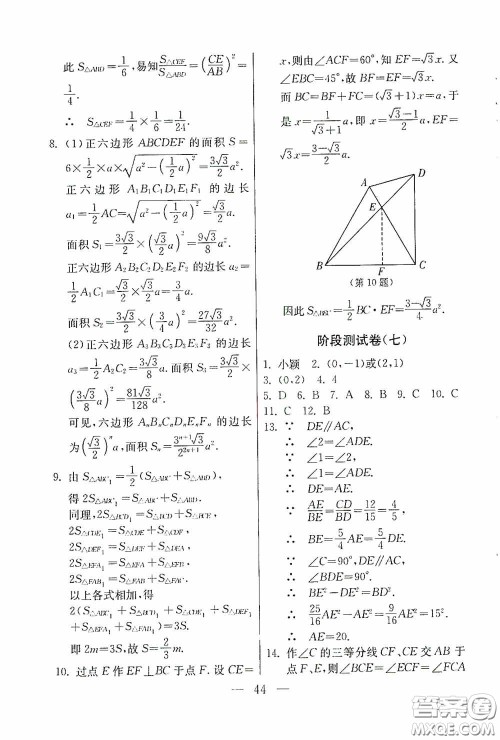 此 S△ABD=1/6, 易知 S△CEF/S△ABD=(CE/AB)²=
1/4.
∴ S△CEF=1/4×1/6=1/24.
8. (1)正六边形 ABCDEF 的面积 S=
6×1/2×a×√(a²-(1/2 a)²)=3√3/2 a².
正六边形 A₁B₁C₁D₁E₁F₁ 的边长
a₁=1/2 AC=√(a²-(1/2 a)²)=√3/2 a.
面积 S₁=3√3/2×(√3/2 a)²=9√3/8 a².
正六边形 A₂B₂C₂D₂E₂F₂ 的边长 a₂=
1/2 A₁C₁=√3/2×(√3/2 a)=3/4 a.
面积 S₂=3√3/2×(3/4 a)²=27√3/32 a².
(2)正六边形 A₃B₃C₃D₃E₃F₃ 的边长
a₃=1/2 A₂C₂=3√3/8 a. 面积 S₃=3√3/2
×(3√3/8 a)²=81√3/128 a².
可见,六边形 AₙBₙCₙDₙEₙFₙ 的边长
为(√3/2)ⁿ a,面积 Sₙ=3ⁿ⁺¹√3/2²ⁿ⁺¹ a².
9. 由 S△ABC₁=1/2(S△ABC+S△ABD),
得 2S△ABC₁=S△ABC+S△ABD.
同理, 2S△BCD₁=S△BCD+S△BCE,
2S△CDE₁=S△CDE+S△CDF,
2S△DEF₁=S△DEF+S△DEA,
2S△EFA₁=S△EFA+S△EFB,
2S△FAB₁=S△FAB+S△FAC.
以上各式相加,得
2(S△ABC₁+S△BCD₁+S△CDE₁+S△DEF₁
+S△EFA₁+S△FAB₁)=3S.
即 2m=3S,故 S=2/3 m.
10. 过点 E 作 EF⊥BC 于点 F. 设 CE=
x,则由∠ACF=60°,知 EF=√3x. 又
∠EBC=45°,故 BF=EF=√3x.
而 BC=BF+FC=(√3+1)x=a,于
是 x=1/(√3+1) a,即 x=(√3-1)/2 a,EF=
√3x=(3-√3)/2 a.
A
D
E
B
F
C
(第 10 题)
因此 S△BEC=1/2 BC·EF=(3-√3)/4 a².
阶段测试卷(七)
1. 小颖 2. (0,-1)或(2,1)
3. (0,2) 4. 4
5. D 6. B 7. A 8. B 9. C 10. C
11. C 12. B
13. ∵ DE∥AC,
∴ ∠2=∠ADE.
∵ ∠1=∠2,
∴ ∠1=∠ADE.
∴ DE=AE.
∵ AE/BE=CD/BD=12/15=4/5,
∴ BE=5/4 AE=5/4 DE.
∵ ∠C=90°,DE∥AC,
∴ ∠BDE=90°.
∴ BE²-DE²=BD².
∴ 25/16 AE²-AE²=9/16 AE²=15².
∴ AE=20.
14. 作∠C 的三等分线 CF、CE 交 AB 于
点 F、E,则∠BCE=∠ECF=∠FCA
— 44 —